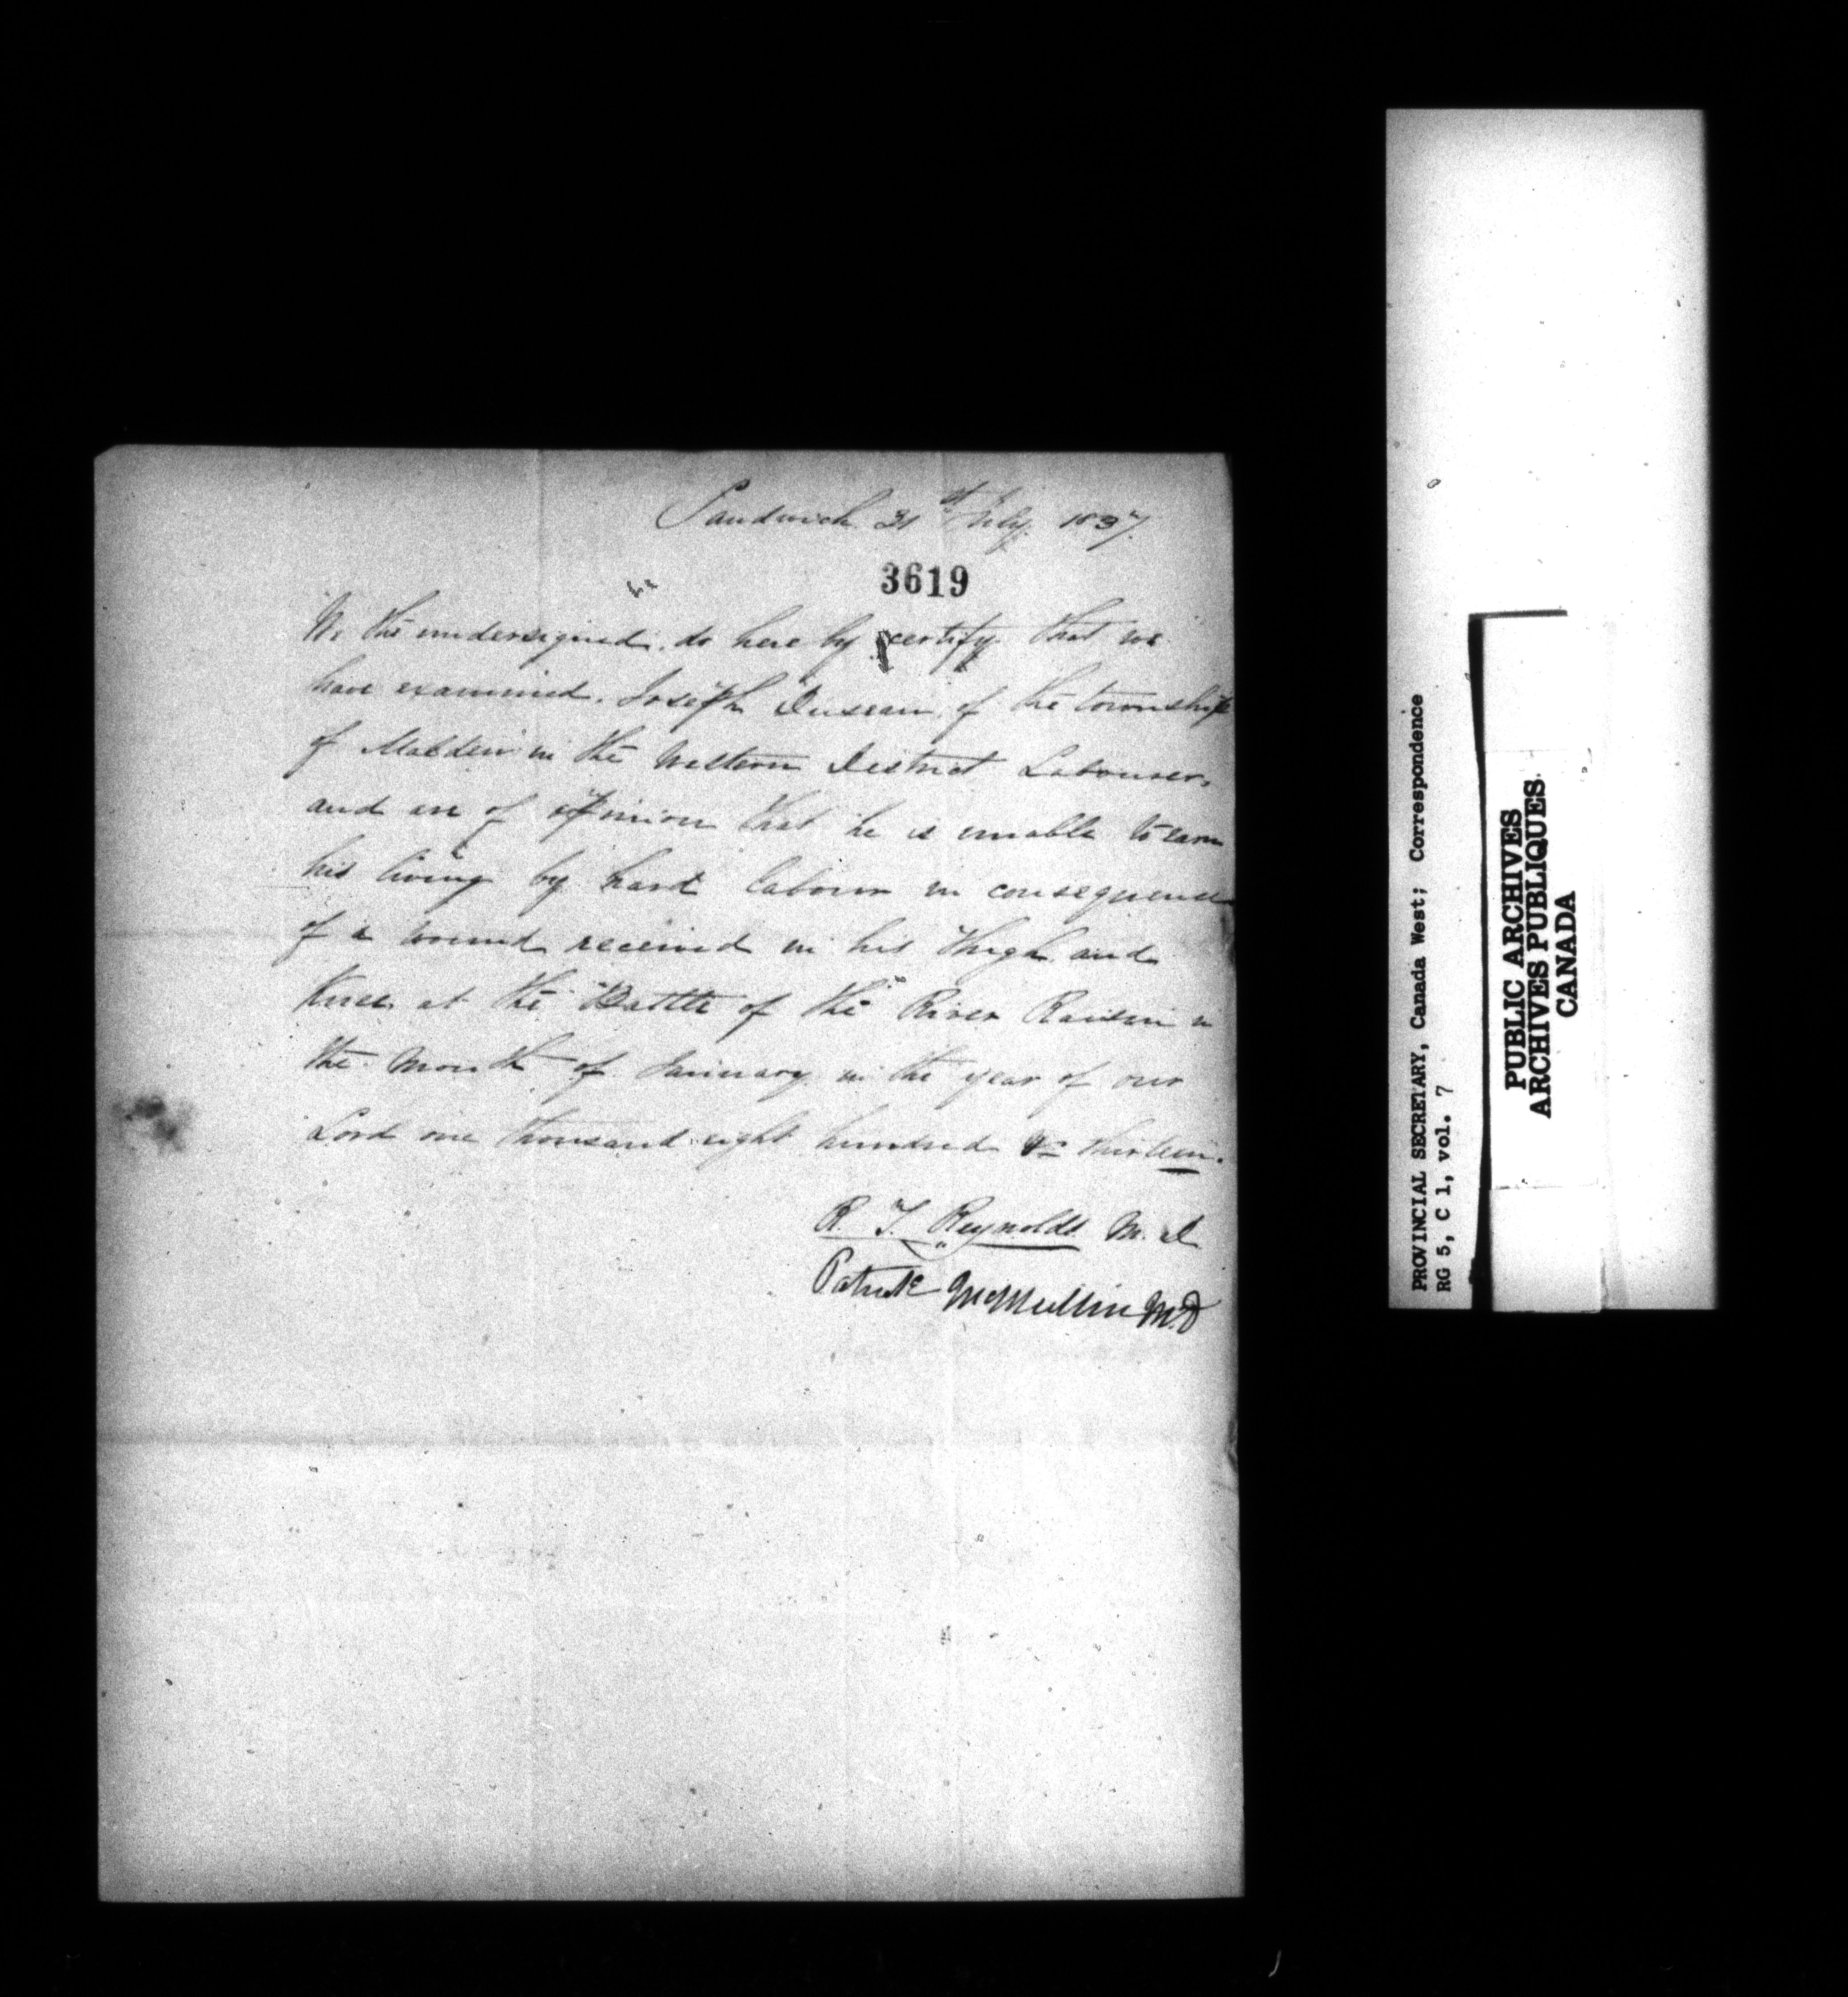 Sandwich 31st July 1837.
3619
We the undersigned, do here by certify that we
have examined, Joseph Dussau, of the township
of Malden in the Western District Labourer,
and are of opinion that he is unable to earn
his living by hard labour in consequence
of a wound received in his Thigh and
Knee at the "Battle of the" River Raisin in
the Month of January in the year of our
Lord one thousand eight hundred & thirteen.
R. T. Reynolds M.D.
Patrick McMullin M.D
PROVINCIAL SECRETARY, Canada West; Correspondence
RG 5, C 1, vol. 7
PUBLIC ARCHIVES
ARCHIVES PUBLIQUES
CANADA